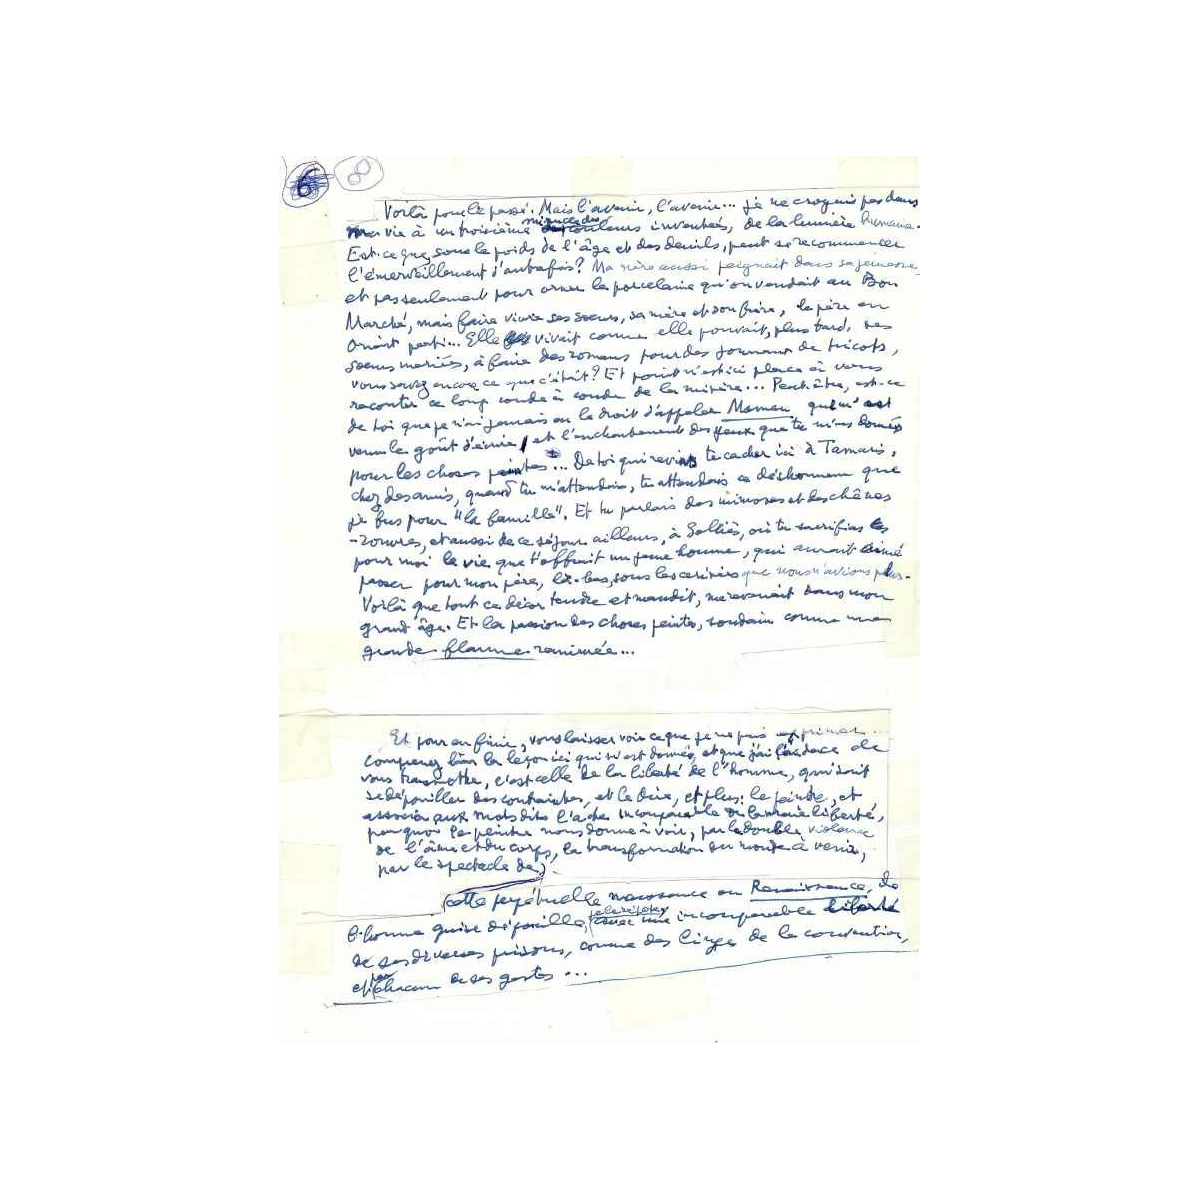 6 8
Voilà pour le passé. Mais l'avenir, l'avenir... je ne croyais pas dans
ma vie à un troisième miracle des couleurs inventées, de la lumière humaine.
Est-ce que, sous le poids de l'âge et des deuils, peut se recommencer
l'émerveillement d'autrefois? Ma mère aussi peignait dans sa jeunesse,
et pas seulement pour orner la porcelaine qu'on vendait au Bon
Marché, mais faire vivre ses sœurs, sa mère et son frère, le père en
Orient parti... Elle vivait comme elle pouvait, plus tard, ses
sœurs mariées, à faire des romans pour des journaux de tricots,
vous savez encore ce que c'était? Et point n'est ici place à vous
raconter ce long coude à coude de la misère... Peut-être, est-ce
de toi que je n'ai jamais eu le droit d'appeler Maman, que m'est
venu le goût d'écrire, et l'enchantement des yeux que tu m'as donnés
pour les choses peintes... De toi qui revins te cacher ici à Tamaris,
chez des amis, quand tu m'attendais, tu attendais ce déshonneur que
je fus pour "la famille". Et tu parlais des mimosas et des chênes
-rouvres, et aussi de ce séjour ailleurs, à Solliès, où tu sacrifias
pour moi la vie que t'offrait un jeune homme, qui aurait aimé
passer pour mon père, là-bas, sous les cerisiers que nous n'avions plus.
Voilà que tout ce décor tendre et maudit, me revenait dans mon
grand âge. Et la passion des choses peintes, soudain comme une
grande flamme ranimée...
Et pour en finir, vous laisser voir ce que je ne puis exprimer
comprenez bien la leçon ici qui m'est donnée, et que j'ai l'audace de
vous transmettre, c'est celle de la liberté de l'homme, qui doit
se dépouiller des contraintes, et le dire, et plus: le peindre, et
associer aux mots dits l'acte incomparable de la vraie liberté,
par quoi le peintre nous donne à voir, par la double violence
de l'âme et du corps, la transformation du monde à venir,
par le spectacle de
cette perpétuelle naissance ou Renaissance, de
l'homme qui se dépouille, avec une incomparable liberté
de ses diverses prisons, comme des linges de la convention,
et par chacun de ses gestes...